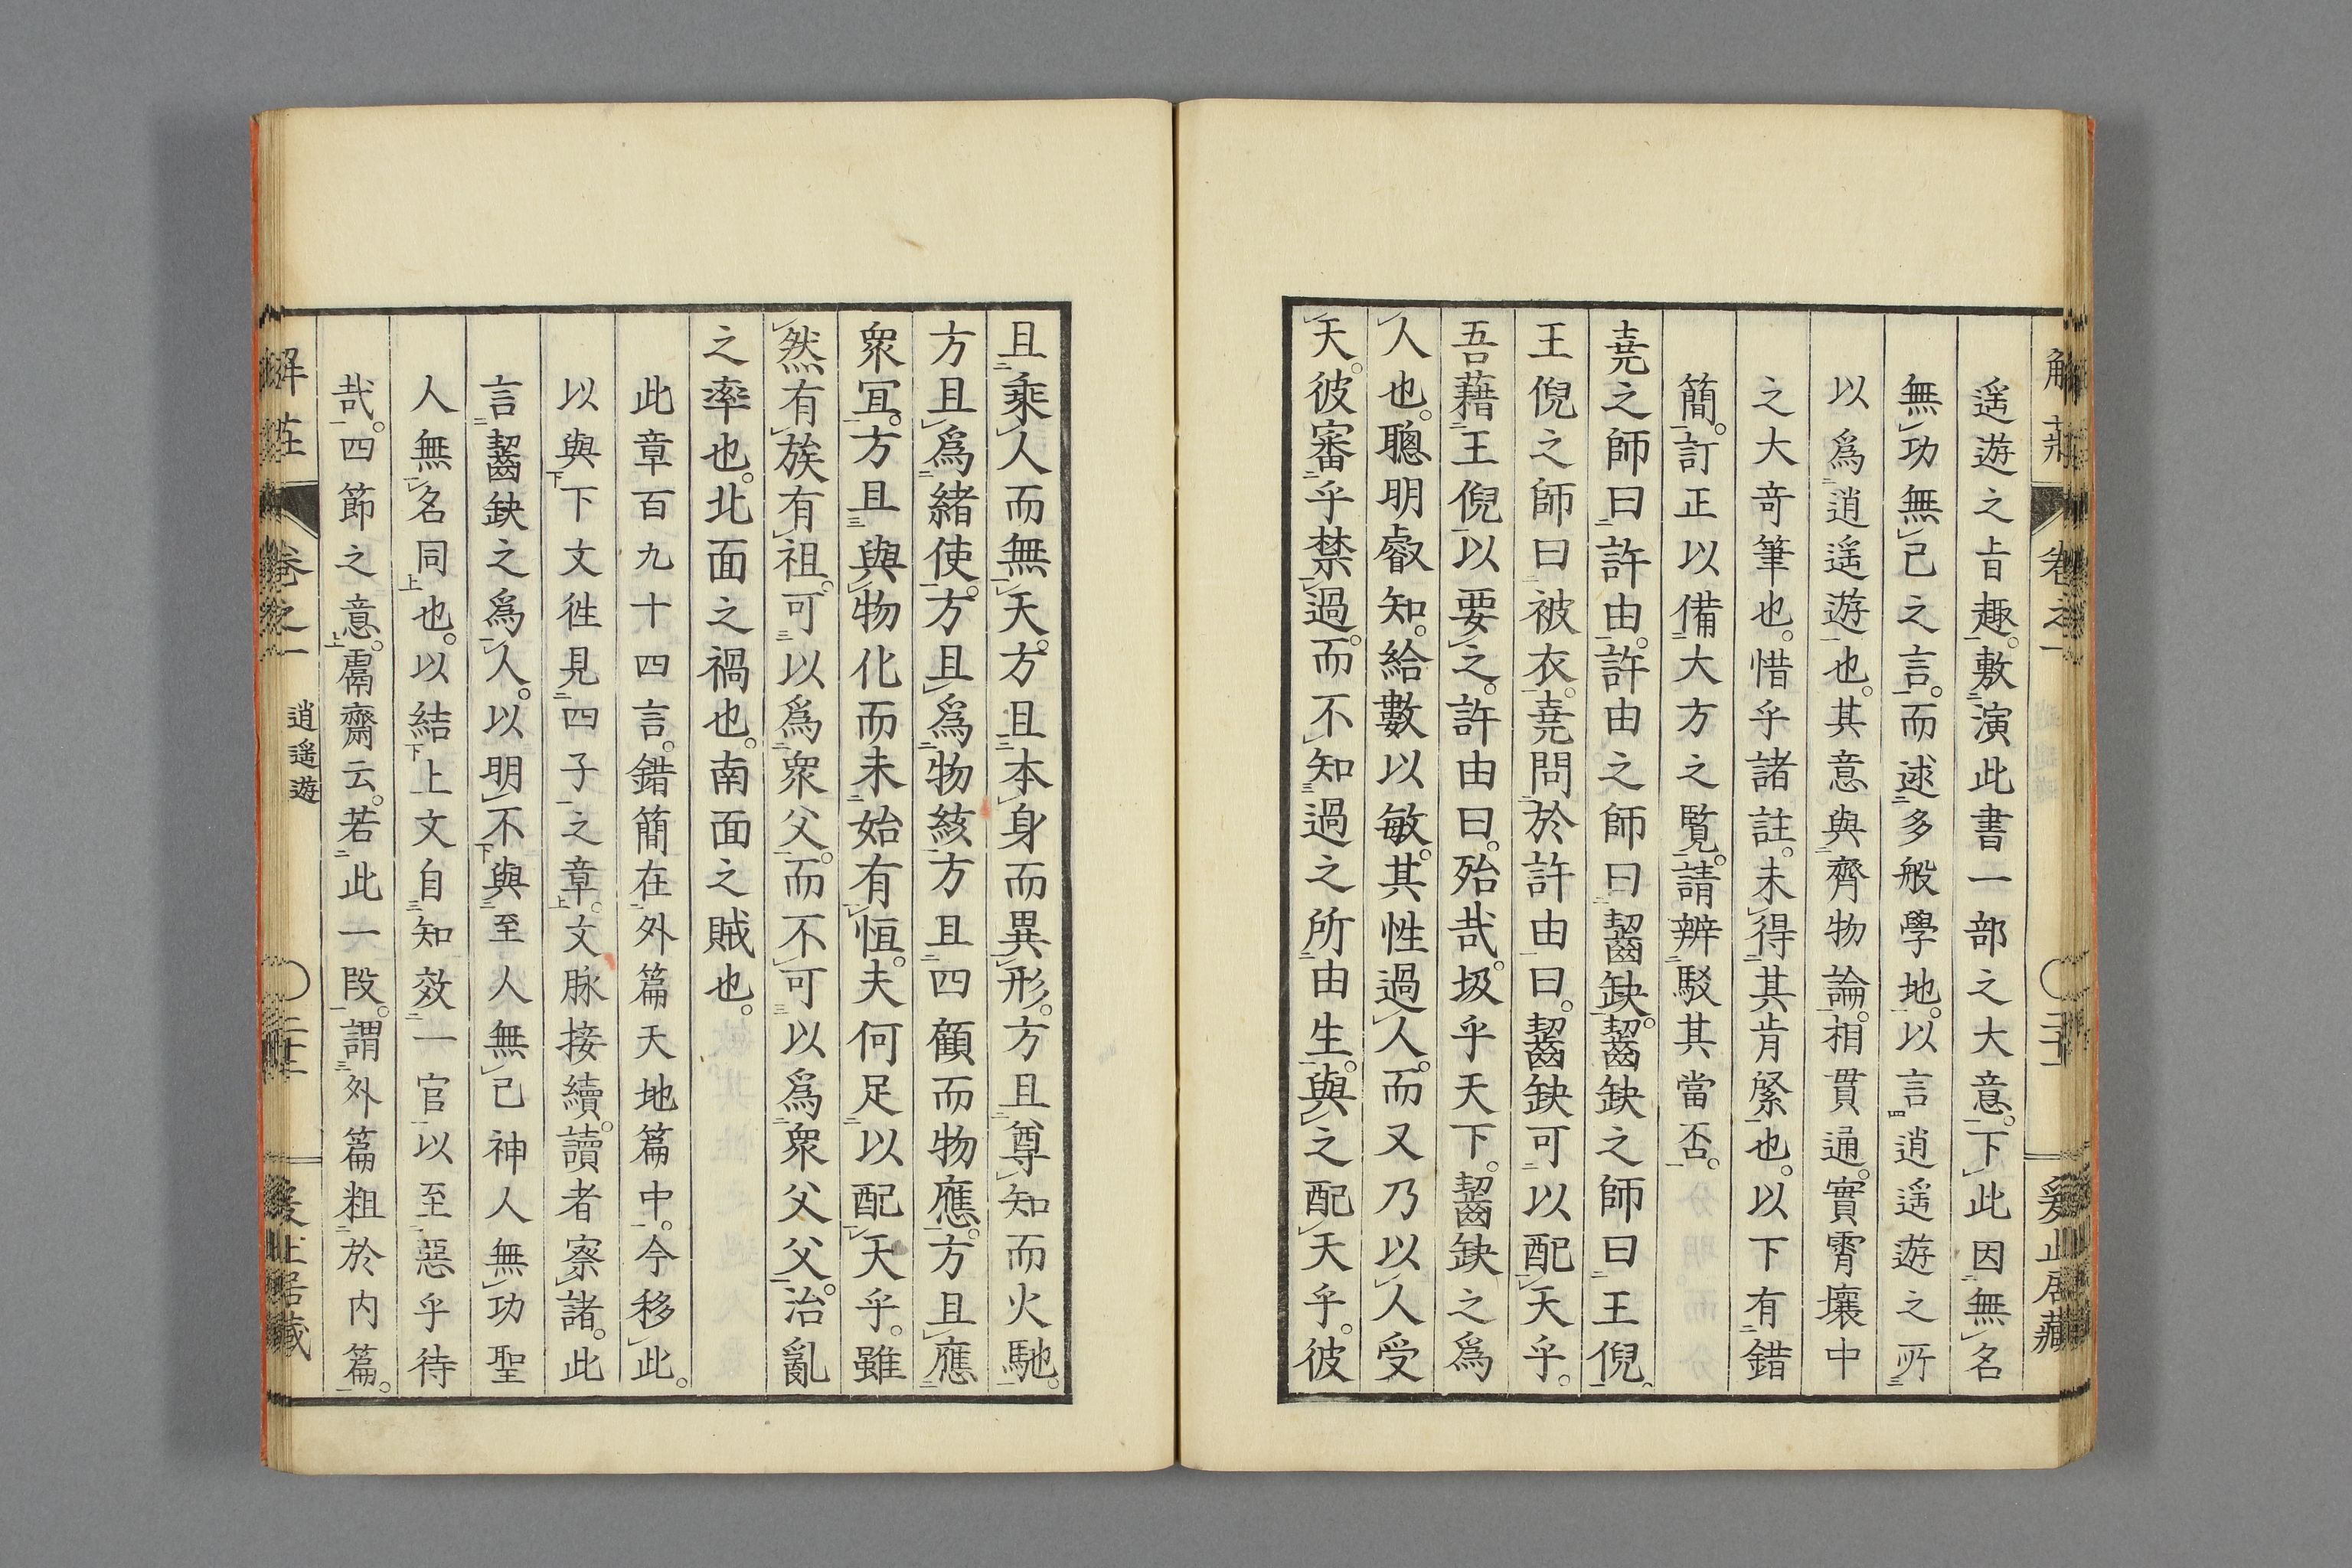 遙遊之旨趣。敷演此書一部之大意。下此因無名
無功無己之言。而逑多般學地。以言逍遙遊之所
以爲逍遙遊也。其意與齊物論相貫通。實霄壤中
之大奇筆也。惜乎諸註。未得其肯綮也。以下有錯
簡。訂正以備大方之覧。請辨駁其當否。
堯之師曰許由。許由之師曰齧缺。齧缺之師曰王倪。
王倪之師曰被衣。堯問於許由曰。齧缺可以配天乎。
吾藉王倪以要之。許由曰。殆哉。圾乎天下。齧缺之爲
人也。聰明叡知。給數以敏。其性過人。而又乃以人受
天。彼審乎禁過。而不知過之所由生。與之配天乎。彼
且乘人而無天。方且本身而異形。方且尊知而火馳。
方且爲緒使。方且爲物絃方且四顧而物應。方且應
衆宜。方且與物化而未始有恒。夫何足以配天乎。雖
然有族有祖。可以爲衆父。而不可以爲衆父父。治亂
之率也。北面之禍也。南面之賊也。
此章百九十四言。錯簡在外篇天地篇中。今移此。
以與下文徃見四子之章。文脉接續。讀者察諸。此
言齧缺之爲人。以明不與至人無己神人無功聖
人無名同也。以結上文自知效一官以至惡乎待
哉。四節之意。鬳齋云。若此一段。謂外篇粗於内篇。
解莊 卷之一 逍遙遊